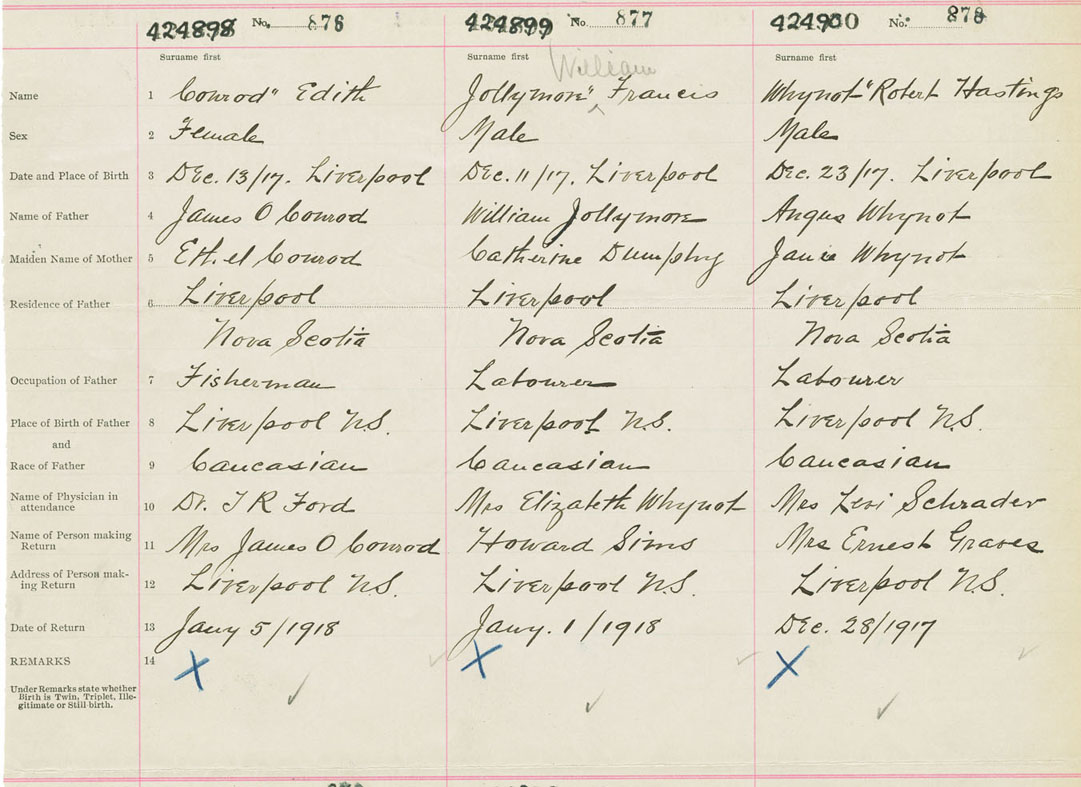 424898 No. 876 424899 No. 877 424900 No. 878
Surname first Surname first William Surname first
Name 1 Conrod" Edith Jollymore" ^ Francis Whynot "Robert Hastings
Sex 2 Female Male Male
Date and Place of Birth 3 Dec. 13/17. Liverpool Dec. 11/17. Liverpool Dec. 23/17. Liverpool
Name of Father 4 James O Conrod William Jollymore Angus Whynot
Maiden Name of Mother 5 Ethel Conrod Catherine Dumphy Janie Whynot
Residence of Father 6 Liverpool Liverpool Liverpool
Nova Scotia Nova Scotia Nova Scotia
Occupation of Father 7 Fisherman Labourer Labourer
Place of Birth of Father 8 Liverpool N.S. Liverpool N.S. Liverpool N.S.
and
Race of Father 9 Caucasian Caucasian Caucasian
Name of Physician in
attendance 10 Dr. T R Ford Mrs Elizabeth Whynot Mrs Levi Schrader
Name of Person making
Return 11 Mrs James O Conrod Howard Sims Mrs Ernest Graves
Address of Person mak-
ing Return 12 Liverpool N.S. Liverpool N.S. Liverpool N.S.
Date of Return 13 Jany 5/1918 Jany. 1/1918 Dec. 28/1917
REMARKS 14 X X X
Under Remarks state whether
Birth is Twin, Triplet, Ille-
gitimate or Still-birth.